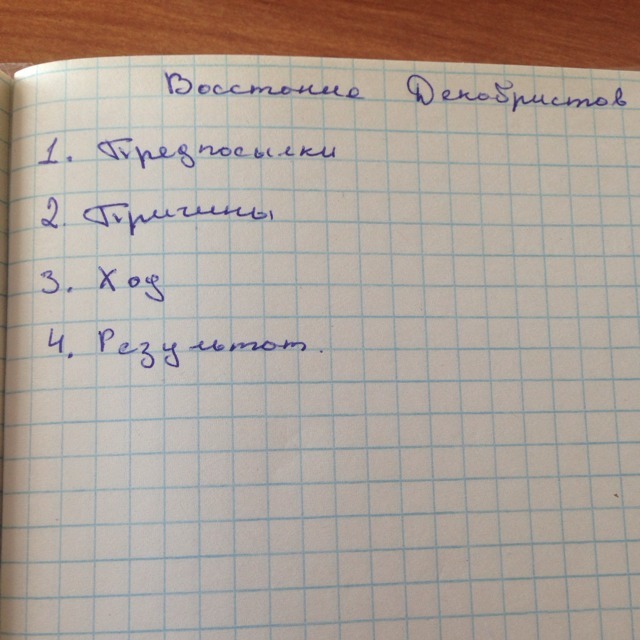 Восстание Декабристов
1. Предпосылки
2. Причины
3. Ход
4. Результат.